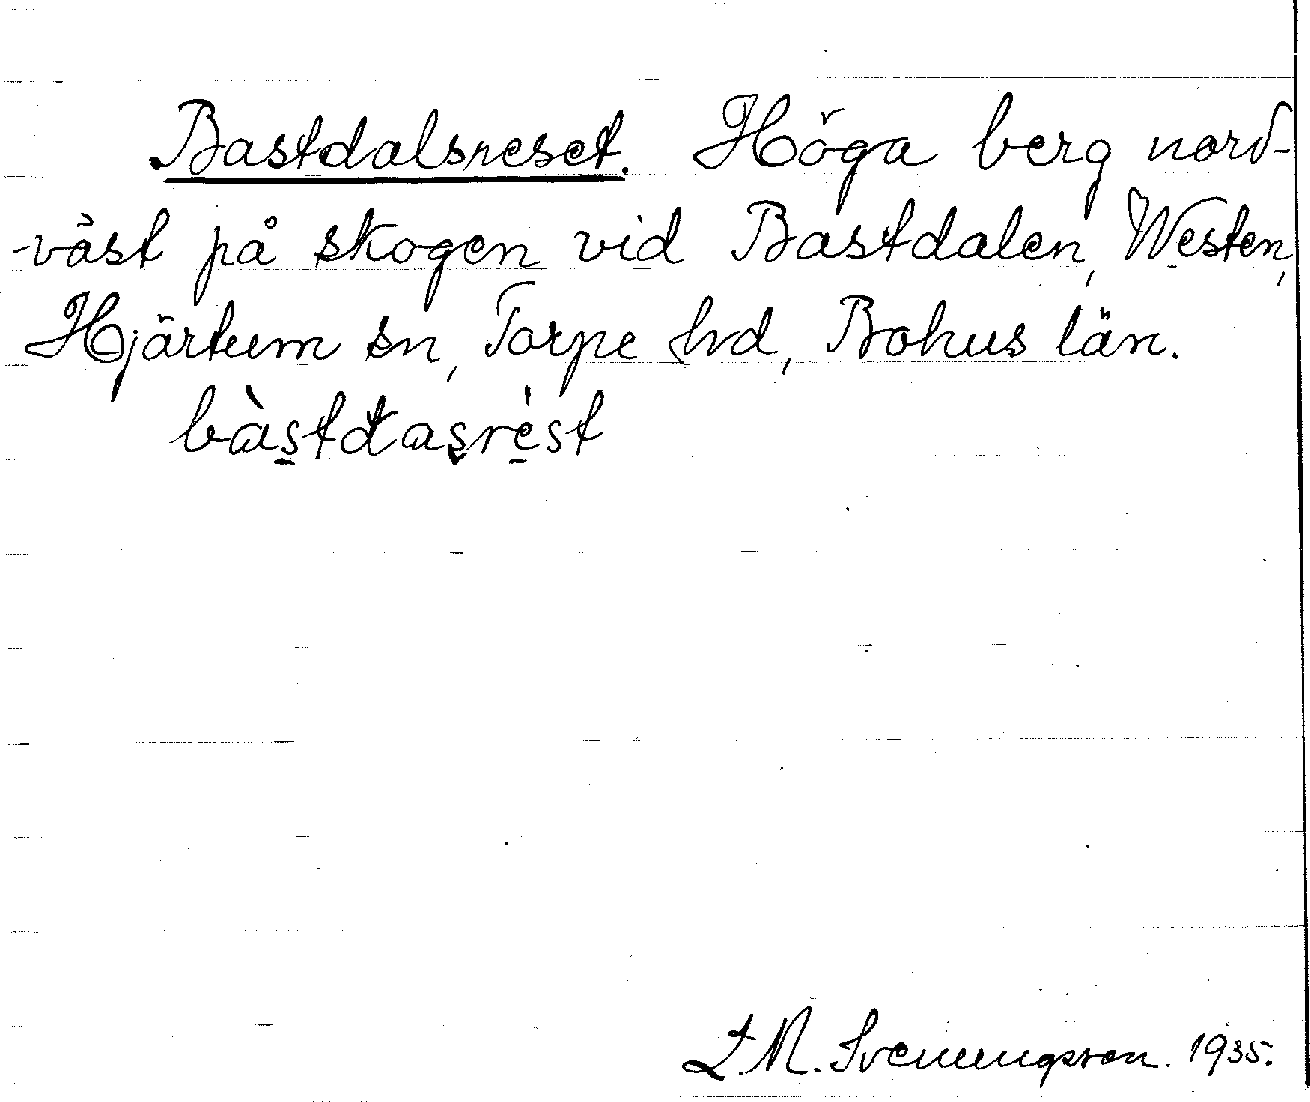 Bastdalsreset. Höga berg nord-
-väst på skogen vid Bastdalen, Westen,
Hjärtum sn, Torpe hd, Bohus län.
bàstdas̬rèst
L. M. Svenungsson. 1935.